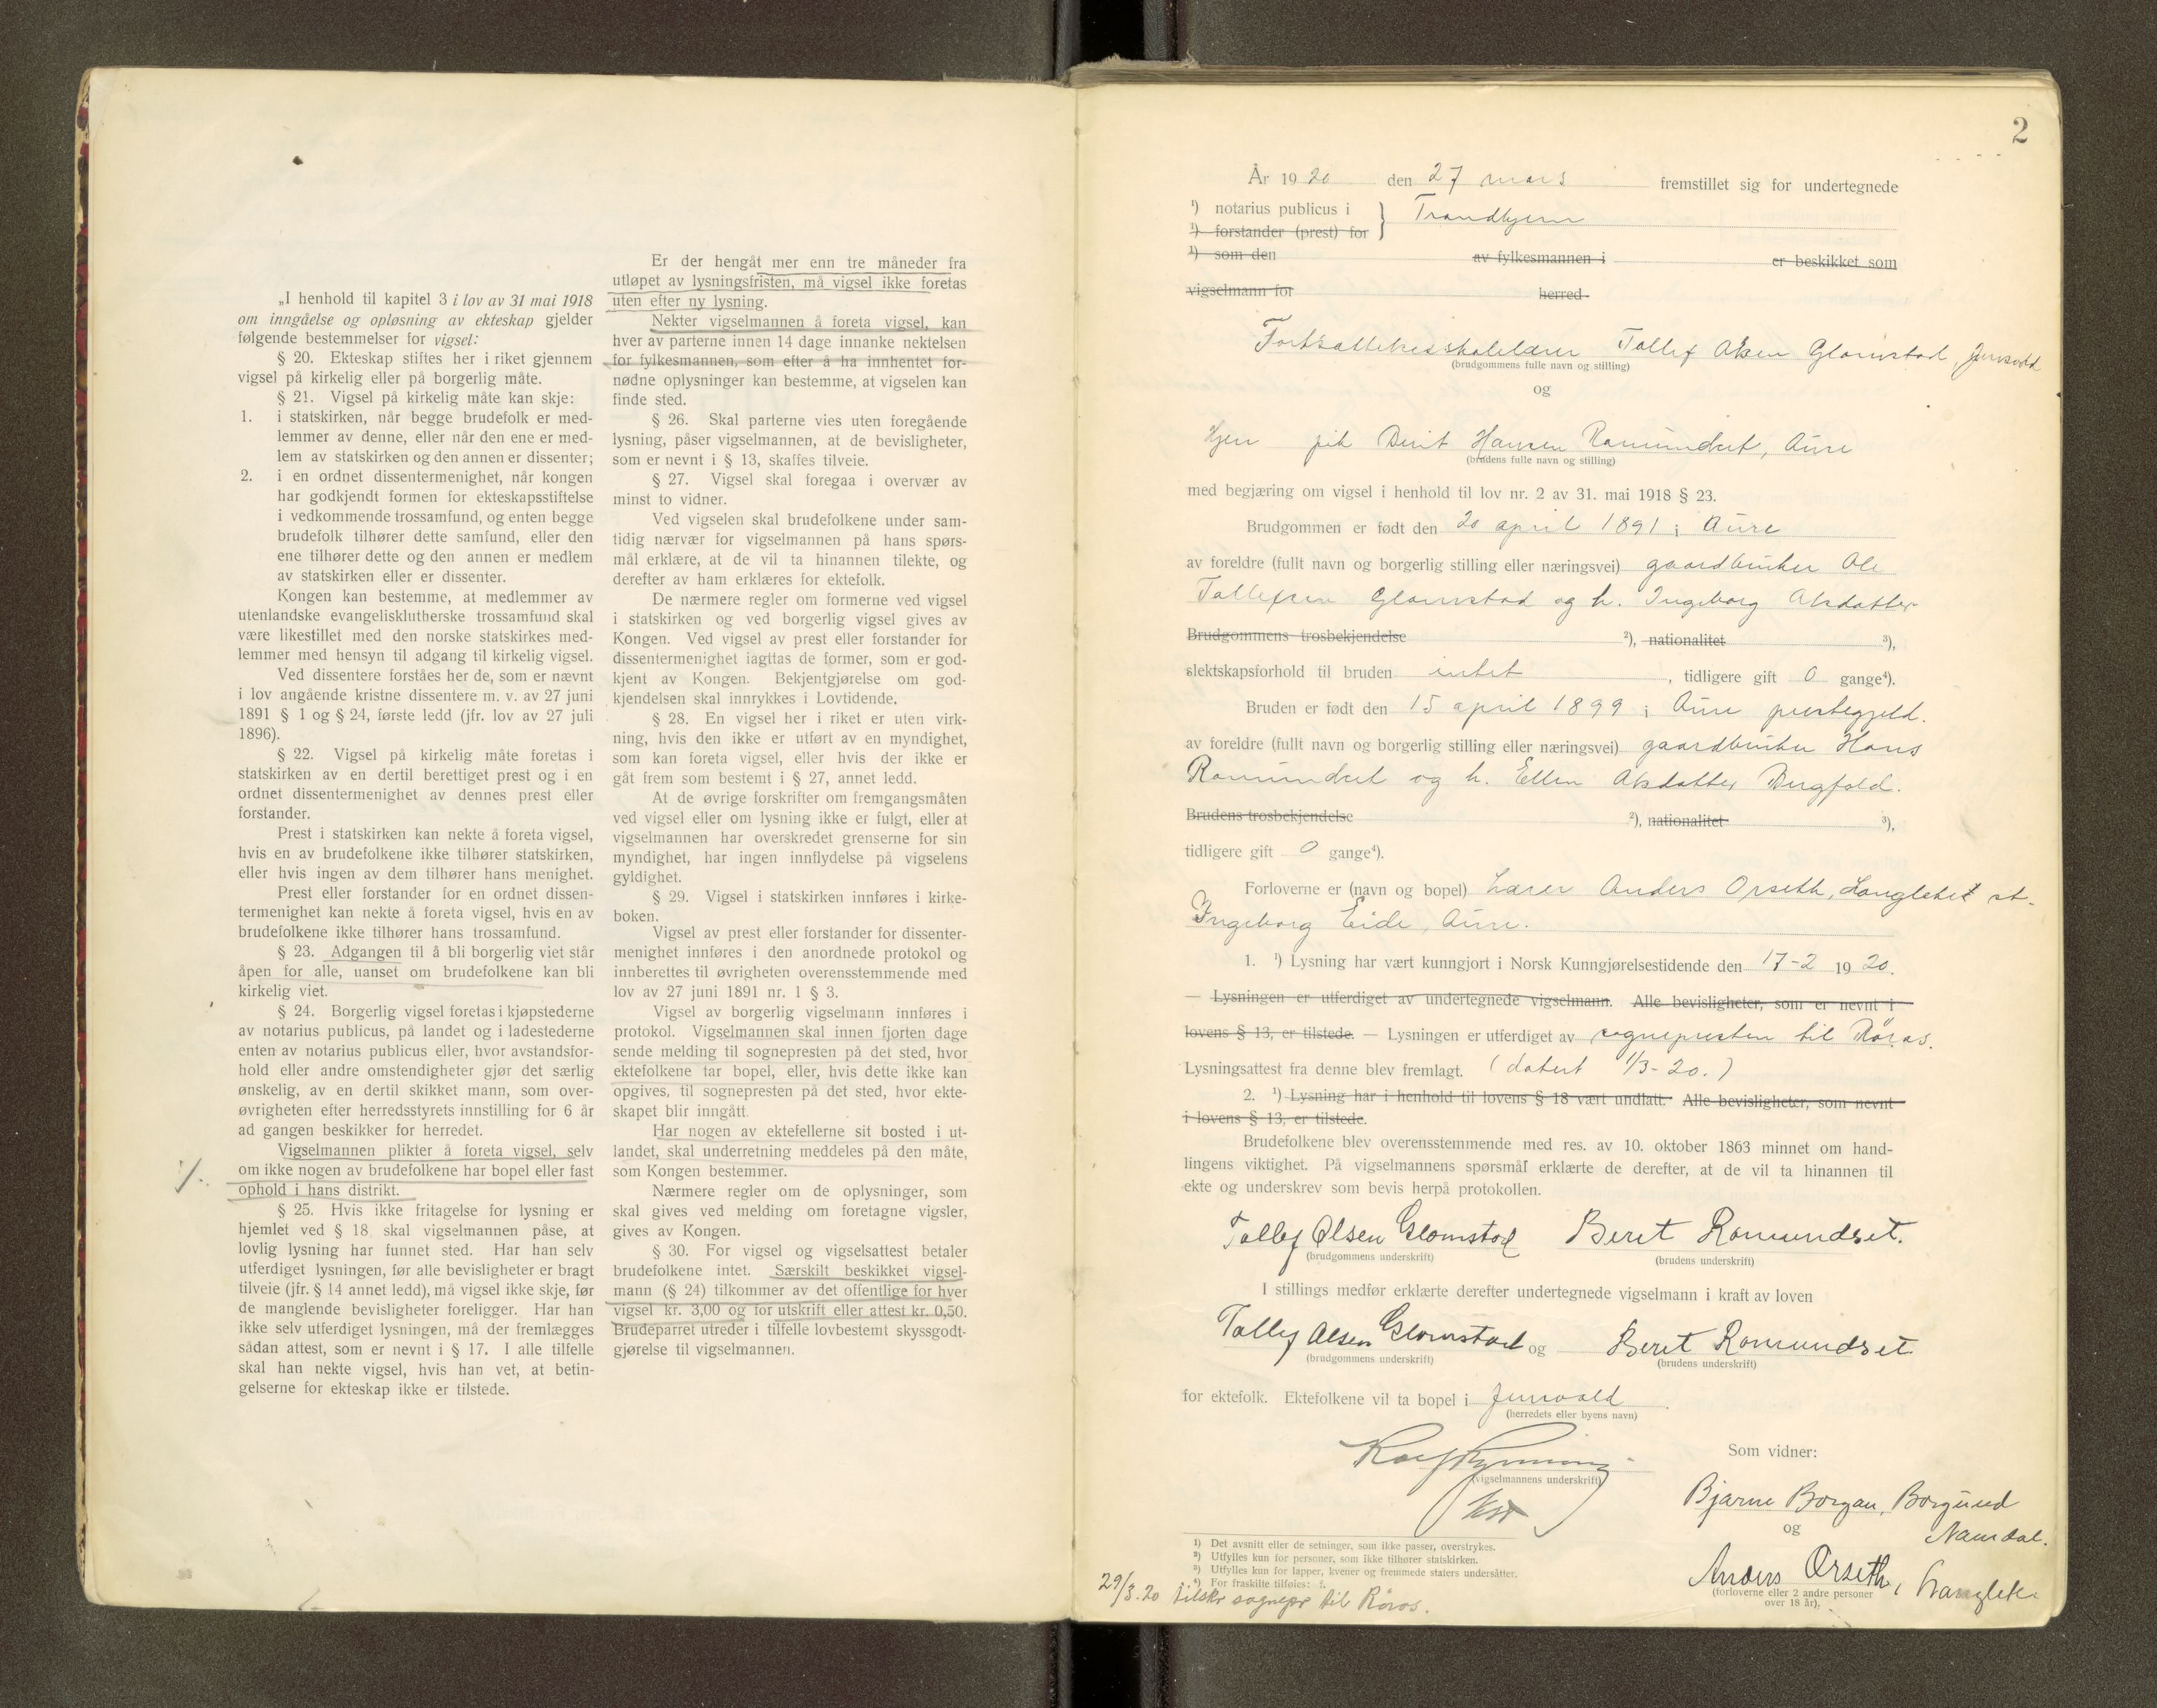 „I henhold til kapitel 3 i lov av 31 mai 1918
om inngåelse og opløsning av ekteskap gjelder
følgende bestemmelser for vigsel:
§ 20. Ekteskap stiftes her i riket gjennem
vigsel på kirkelig eller på borgerlig måte.
§ 21. Vigsel på kirkelig måte kan skje:
1. i statskirken, når begge brudefolk er med-
lemmer av denne, eller når den ene er med-
lem av statskirken og den annen er dissenter;
2. i en ordnet dissentermenighet, når kongen
har godkjendt formen for ekteskapsstiftelse
i vedkommende trossamfund, og enten begge
brudefolk tilhører dette samfund, eller den
ene tilhører dette og den annen er medlem
av statskirken eller er dissenter.
Kongen kan bestemme, at medlemmer av
utenlandske evangelisklutherske trossamfund skal
være likestillet med den norske statskirkes med-
lemmer med hensyn til adgang til kirkelig vigsel.
Ved dissentere forståes her de, som er nævnt
i lov angående kristne dissentere m. v. av 27 juni
1891 § 1 og § 24, første ledd (jfr. lov av 27 juli
1896).
§ 22. Vigsel på kirkelig måte foretas i
statskirken av en dertil berettiget prest og i en
ordnet dissentermenighet av dennes prest eller
forstander.
Prest i statskirken kan nekte å foreta vigsel,
hvis en av brudefolkene ikke tilhører statskirken,
eller hvis ingen av dem tilhører hans menighet.
Prest eller forstander for en ordnet dissen-
termenighet kan nekte å foreta vigsel, hvis en av
brudefolkene ikke tilhører hans trossamfund.
§ 23. Adgangen til å bli borgerlig viet står
åpen for alle, uanset om brudefolkene kan bli
kirkelig viet.
§ 24. Borgerlig vigsel foretas i kjøpstederne
av notarius publicus, på landet og i ladestederne
enten av notarius publicus eller, hvor avstandsfor-
hold eller andre omstendigheter gjør det særlig
ønskelig, av en dertil skikket mann, som over-
øvrigheten efter herredsstyrets innstilling for 6 år
ad gangen beskikker for herredet.
Vigselmannen plikter å foreta vigsel, selv
om ikke nogen av brudefolkene har bopel eller fast
ophold i hans distrikt.
§ 25. Hvis ikke fritagelse for lysning er
hjemlet ved § 18 skal vigselmannen påse, at
lovlig lysning har funnet sted. Har han selv
utferdiget lysningen, før alle bevisligheter er bragt
tilveie (jfr. § 14 annet ledd), må vigsel ikke skje, før
de manglende bevisligheter foreligger. Har han
ikke selv utferdiget lysningen, må der fremlægges
sådan attest, som er nevnt i § 17. I alle tilfelle
skal han nekte vigsel, hvis han vet, at betin-
gelserne for ekteskap ikke er tilstede.
Er der hengåt mer enn tre måneder fra
utløpet av lysningsfristen, må vigsel ikke foretas
uten efter ny lysning.
Nekter vigselmannen å foreta vigsel, kan
hver av parterne innen 14 dage innanke nektelsen
for fylkesmannen, som efter å ha innhentet for-
nødne oplysninger kan bestemme, at vigselen kan
finde sted.
§ 26. Skal parterne vies uten foregående
lysning, påser vigselmannen, at de bevisligheter,
som er nevnt i § 13, skaffes tilveie.
§ 27. Vigsel skal foregaa i overvær av
minst to vidner.
Ved vigselen skal brudefolkene under sam-
tidig nærvær for vigselmannen på hans spørs-
mål erklære, at de vil ta hinannen tilekte, og
derefter av ham erklæres for ektefolk.
De nærmere regler om formerne ved vigsel
i statskirken og ved borgerlig vigsel gives av
Kongen. Ved vigsel av prest eller forstander for
dissentermenighet iagttas de former, som er god-
kjent av Kongen. Bekjentgjørelse om god-
kjendelsen skal innrykkes i Lovtidende.
§ 28. En vigsel her i riket er uten virk-
ning, hvis den ikke er utført av en myndighet,
som kan foreta vigsel, eller hvis der ikke er
gåt frem som bestemt i § 27, annet ledd.
At de øvrige forskrifter om fremgangsmåten
ved vigsel eller om lysning ikke er fulgt, eller at
vigselmannen har overskredet grenserne for sin
myndighet, har ingen innflydelse på vigselens
gyldighet.
§ 29. Vigsel i statskirken innføres i kirke-
boken.
Vigsel av prest eller forstander for dissenter-
menighet innføres i den anordnede protokol og
innberettes til øvrigheten overensstemmende med
lov av 27 juni 1891 nr. 1 § 3.
Vigsel av borgerlig vigselmann innføres i
protokol. Vigselmannen skal innen fjorten dage
sende melding til sognepresten på det sted, hvor
ektefolkene tar bopel, eller, hvis dette ikke kan
opgives, til sognepresten på det sted, hvor ekte-
skapet blir inngått.
Har nogen av ektefellerne sit bosted i ut-
landet, skal underretning meddeles på den måte,
som Kongen bestemmer.
Nærmere regler om de oplysninger, som
skal gives ved melding om foretagne vigsler,
gives av Kongen.
§ 30. For vigsel og vigselsattest betaler
brudefolkene intet. Særskilt beskikket vigsel-
mann (§ 24) tilkommer av det offentlige for hver
vigsel kr. 3,00 og for utskrift eller attest kr. 0,50.
Brudeparret utreder i tilfelle lovbestemt skyssgodt-
gjørelse til vigselmannen.
2
År 1920 den 27 mars fremstillet sig for undertegnede
¹) notarius publicus i } Trondhjem
¹) forstander (prest) for
¹) som den av fylkesmannen i er beskikket som
vigselmann for herred
Fortsættelsesskolelærer Tollef Olsen Glomstad, Jensvold
(brudgommens fulle navn og stilling)
og
Berit Hansen Romundset, Aure
(brudens fulle navn og stilling)
med begjæring om vigsel i henhold til lov nr. 2 av 31. mai 1918 § 23.
Brudgommen er født den 20 april 1891 i Aure
av foreldre (fullt navn og borgerlig stilling eller næringsvei) gaardbruker Ole
Tollefsen Glomstad og h. Ingeborg Olsdatter
Brudgommens trosbekjendelse ²), nationalitet ³),
slektskapsforhold til bruden intet, tidligere gift 0 gange⁴).
Bruden er født den 15 april 1899 i Aure prestegjeld.
av foreldre (fullt navn og borgerlig stilling eller næringsvei) gaardbruker Hans
Romundset og h. Ellen Olsdatter Bergfald.
Brudens trosbekjendelse ²), nationalitet ³),
tidligere gift 0 gange⁴).
Forloverne er (navn og bopel) Lærer Anders Orseth, Langlete st.
Ingeborg Eide, Aure.
1. ¹) Lysning har vært kunngjort i Norsk Kunngjørelsestidende den 17-2 1920.
— Lysningen er utferdiget av undertegnede vigselmann. Alle bevisligheter, som er nevnt i
lovens § 13, er tilstede. — Lysningen er utferdiget av sognepresten til Röros.
Lysningsattest fra denne blev fremlagt. (datert 1/3-20.)
2. ¹) Lysning har i henhold til lovens § 18 vært undlatt. Alle bevisligheter, som nevnt
i lovens § 13, er tilstede.
Brudefolkene blev overensstemmende med res. av 10. oktober 1863 minnet om hand-
lingens viktighet. På vigselmannens spørsmål erklærte de derefter, at de vil ta hinannen til
ekte og underskrev som bevis herpå protokollen.
Tollef Olsen Glomstad Beret Romundset.
(brudgommens underskrift) (brudens underskrift)
I stillings medfør erklærte derefter undertegnede vigselmann i kraft av loven
Tollef Olsen Glomstad og Beret Romundset
(brudgommens underskrift) (brudens underskrift)
for ektefolk. Ektefolkene vil ta bopel i Jensvold
(herredets eller byens navn)
Som vidner:
(vigselmannens underskrift)
Bjarne Borgan, Borgund
og Namdal.
Anders Orseth, Langlete
(forloverne eller 2 andre personer
over 18 år).
¹) Det avsnitt eller de setninger, som ikke passer, overstrykes.
²) Utfylles kun for personer, som ikke tilhører statskirken.
³) Utfylles kun for lapper, kvener og fremmede staters undersåtter.
⁴) For fraskilte tilføies: f.
29/3.20 tilskr sognepr til Röros.